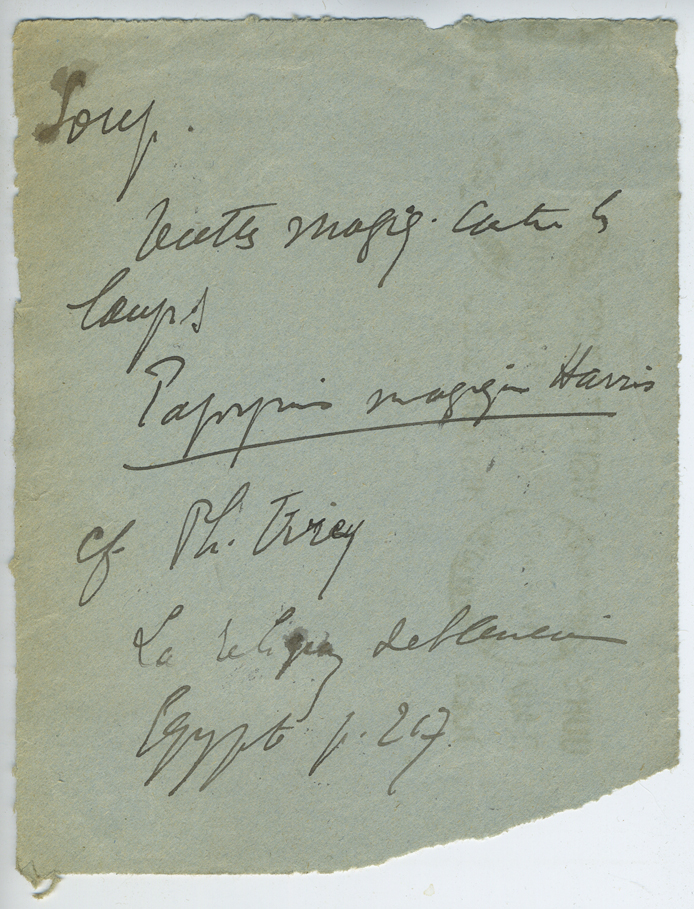 Loup.
Textes magiq. contre les
loups
Papyrus magique Harris
cf Ph. Virey
La religion de l'ancienne
Egypte p.